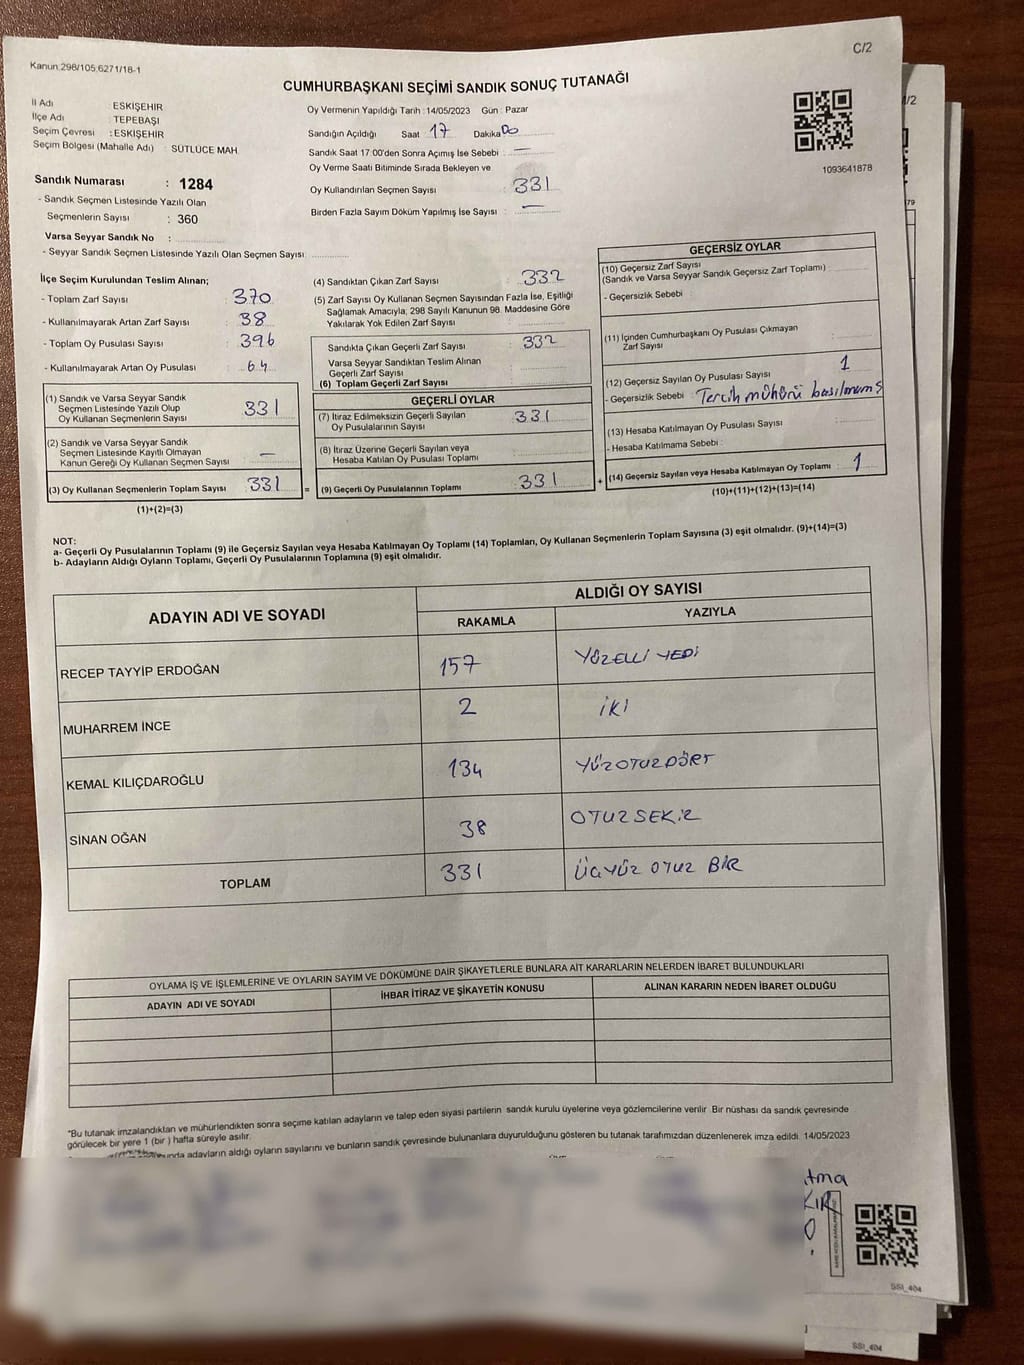 C/2
Kanun:298/105,6271/18-1
CUMHURBAŞKANI SEÇİMİ SANDIK SONUÇ TUTANAĞI
İl Adı : ESKİŞEHİR
İlçe Adı : TEPEBAŞI
Seçim Çevresi : ESKİŞEHİR
Seçim Bölgesi (Mahalle Adı) : SÜTLÜCE MAH.
Oy Vermenin Yapıldığı Tarih : 14/05/2023 Gün : Pazar
Sandığın Açıldığı Saat 17 Dakika 00
Sandık Saat 17:00'den Sonra Açımış İse Sebebi : —
Oy Verme Saati Bitiminde Sırada Bekleyen ve
Oy Kullandırılan Seçmen Sayısı : 331
Birden Fazla Sayım Döküm Yapılmış İse Sayısı : —
1093641878
Sandık Numarası : 1284
- Sandık Seçmen Listesinde Yazılı Olan
Seçmenlerin Sayısı : 360
Varsa Seyyar Sandık No :
- Seyyar Sandık Seçmen Listesinde Yazılı Olan Seçmen Sayısı:
İlçe Seçim Kurulundan Teslim Alınan;
- Toplam Zarf Sayısı : 370
- Kullanılmayarak Artan Zarf Sayısı : 38
- Toplam Oy Pusulası Sayısı : 396
- Kullanılmayarak Artan Oy Pusulası : 64
(1) Sandık ve Varsa Seyyar Sandık
Seçmen Listesinde Yazılı Olup
Oy Kullanan Seçmenlerin Sayısı : 331
(2) Sandık ve Varsa Seyyar Sandık
Seçmen Listesinde Kayıtlı Olmayan
Kanun Gereği Oy Kullanan Seçmen Sayısı : —
(3) Oy Kullanan Seçmenlerin Toplam Sayısı : 331
(1)+(2)=(3)
=
(4) Sandıktan Çıkan Zarf Sayısı : 332
(5) Zarf Sayısı Oy Kullanan Seçmen Sayısından Fazla İse, Eşitliği
Sağlamak Amacıyla; 298 Sayılı Kanunun 98. Maddesine Göre
Yakılarak Yok Edilen Zarf Sayısı :
Sandıkta Çıkan Geçerli Zarf Sayısı : 332
Varsa Seyyar Sandıktan Teslim Alınan
Geçerli Zarf Sayısı :
(6) Toplam Geçerli Zarf Sayısı :
GEÇERLİ OYLAR
(7) İtiraz Edilmeksizin Geçerli Sayılan
Oy Pusulalarının Sayısı : 331
(8) İtiraz Üzerine Geçerli Sayılan veya
Hesaba Katılan Oy Pusulası Toplamı :
(9) Geçerli Oy Pusulalarının Toplamı : 331
+
GEÇERSİZ OYLAR
(10) Geçersiz Zarf Sayısı
(Sandık ve Varsa Seyyar Sandık Geçersiz Zarf Toplamı) :
- Geçersizlik Sebebi :
(11) İçinden Cumhurbaşkanı Oy Pusulası Çıkmayan
Zarf Sayısı :
(12) Geçersiz Sayılan Oy Pusulası Sayısı : 1
- Geçersizlik Sebebi : Tercih mühürü basılmamış
(13) Hesaba Katılmayan Oy Pusulası Sayısı :
- Hesaba Katılmama Sebebi :
(14) Geçersiz Sayılan veya Hesaba Katılmayan Oy Toplamı : 1
(10)+(11)+(12)+(13)=(14)
NOT:
a- Geçerli Oy Pusulalarının Toplamı (9) ile Geçersiz Sayılan veya Hesaba Katılmayan Oy Toplamı (14) Toplamları, Oy Kullanan Seçmenlerin Toplam Sayısına (3) eşit olmalıdır. (9)+(14)=(3)
b- Adayların Aldığı Oyların Toplamı, Geçerli Oy Pusulalarının Toplamına (9) eşit olmalıdır.
ADAYIN ADI VE SOYADI
ALDIĞI OY SAYISI
RAKAMLA YAZIYLA
RECEP TAYYİP ERDOĞAN 157 YÜZELLİ YEDİ
MUHARREM İNCE 2 İKİ
KEMAL KILIÇDAROĞLU 134 YÜZOTUZDÖRT
SİNAN OĞAN 38 OTUZSEKİZ
TOPLAM 331 ÜÇYÜZ OTUZ BİR
OYLAMA İŞ VE İŞLEMLERİNE VE OYLARIN SAYIM VE DÖKÜMÜNE DAİR ŞİKAYETLERLE BUNLARA AİT KARARLARIN NELERDEN İBARET BULUNDUKLARI
ADAYIN ADI VE SOYADI İHBAR İTİRAZ VE ŞİKAYETİN KONUSU ALINAN KARARIN NEDEN İBARET OLDUĞU
"Bu tutanak imzalandıktan ve mühürlendikten sonra seçime katılan adayların ve talep eden siyasi partilerin sandık kurulu üyelerine veya gözlemcilerine verilir. Bir nüshası da sandık çevresinde
görülecek bir yere 1 (bir) hafta süreyle asılır.
adayların aldığı oyların sayılarını ve bunların sandık çevresinde bulunanlara duyurulduğunu gösteren bu tutanak tarafımızdan düzenlenerek imza edildi. 14/05/2023
SSI_404
SSI_404